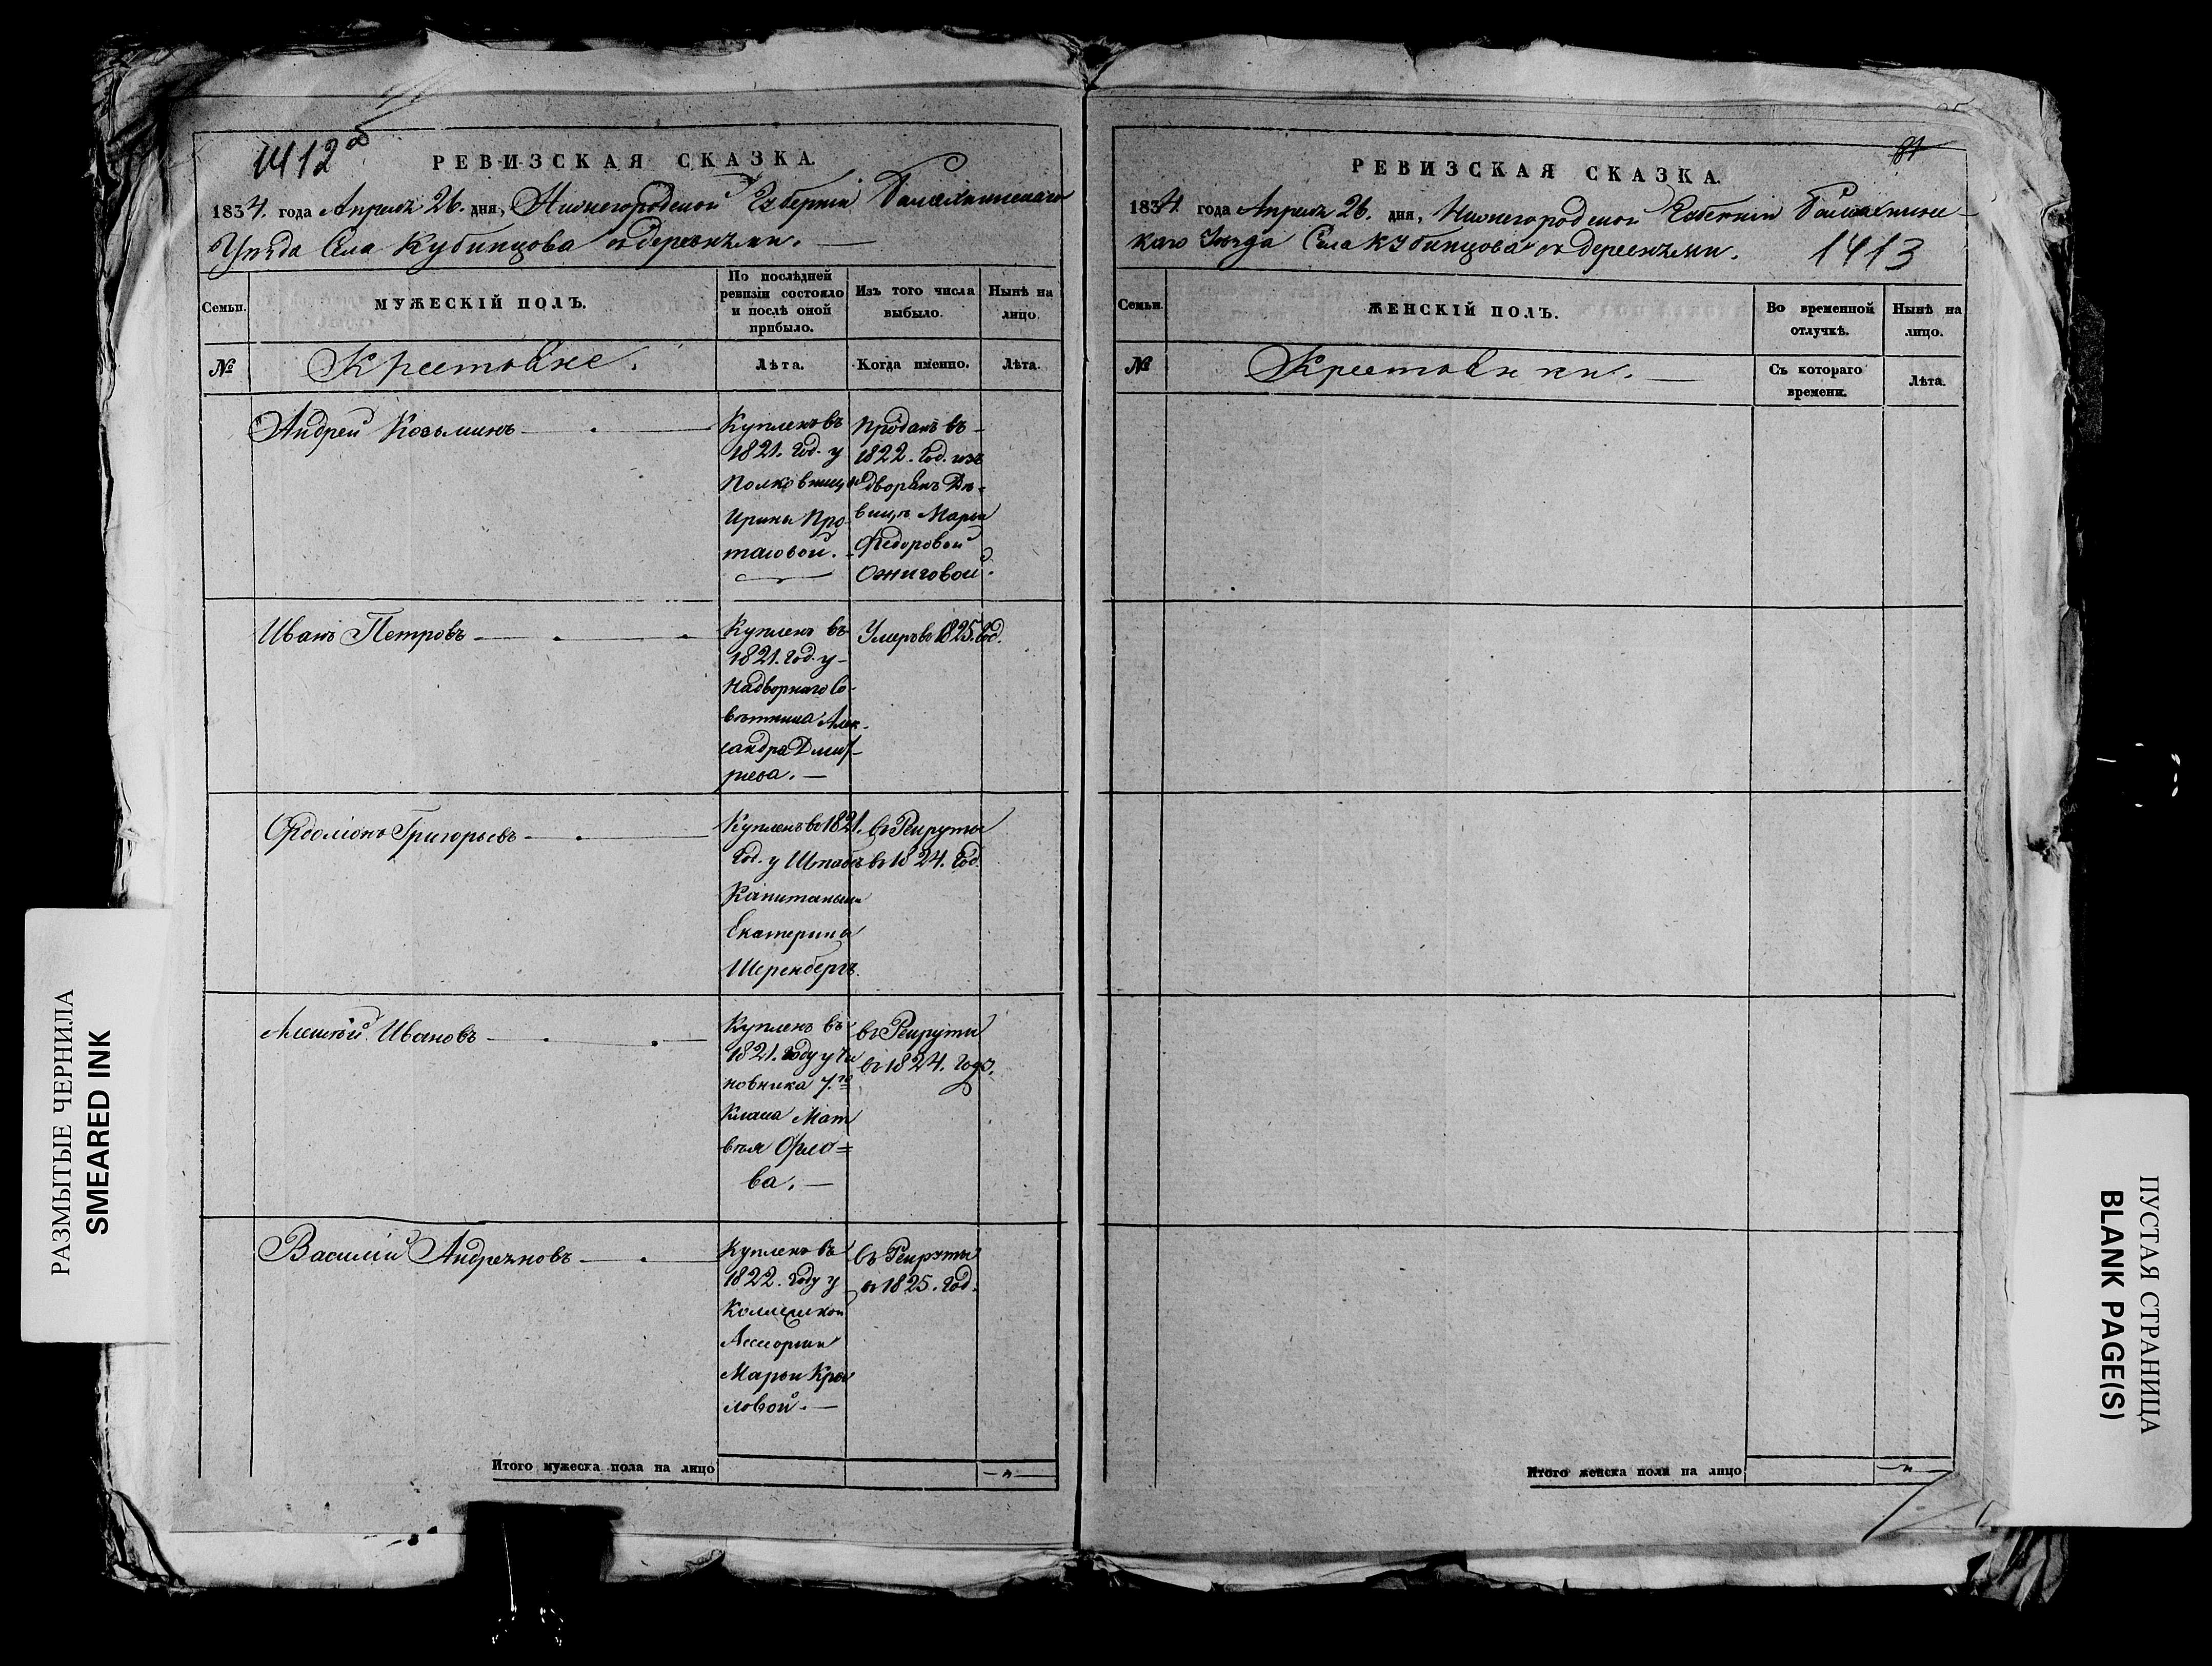 1412 об
РЕВИЗСКАЯ СКАЗКА.
1834. года Апреля 26. дня, Нижегородской Губернии Балахнинскаго
Уѣзда Села Кубинцова съ деревнѣми.
Семьи.
МУЖЕСКІЙ ПОЛЪ.
По послѣдней ревизіи состояло и послѣ оной прибыло.
Изъ того числа выбыло.
Нынѣ на лицо.
№
Крестьяне.
Лѣта.
Когда именно.
Лѣта.
Андрей Козьминъ
Купленъ въ
1821. Год. у
Полковниц
Ирины Про-
тасовой.
Проданъ въ
1822. Год. изъ
дворянъ Дѣ-
вицѣ Марьи
Федоровой
Ожиговой.
Иванъ Петровъ
Купленъ въ
1821. Год. у
Надворнаго Со-
вѣтника Алек-
сандра Дмит-
риева.
Умеръ въ 1825. Год.
Григорьевъ
Купленъ въ 1821.
Год. у Штабсъ
Капитанши
Екатерины
Шеренбергъ.
въ Рекруты
въ 1824. Год.
Алексѣй Ивановъ
Купленъ въ
1821. Году у Чи
новника 7.го
Класа Мат
вѣя Орло=
ва.
въ Рекруты
въ 1824. Году.
Василій Андреяновъ
Купленъ въ
1822. Году у
Колежской
Асесорши
Марьи Кры
ловой.
въ Рекруты
въ 1825. Год.
Итого мужеска пола на лицо
РЕВИЗСКАЯ СКАЗКА.
81
1834 года Апреля 26. дня, Нижегородской Губернии Балахнинс-
каго Уѣзда Села Кубинцова съ деревнѣми.
1413
Семьи.
ЖЕНСКІЙ ПОЛЪ.
Во временной отлучкѣ.
Нынѣ на лицо.
№
Крестьянки.
Съ котораго времени.
Лѣта.
Итого женска пола на лицо
РАЗМЫТЫЕ ЧЕРНИЛА
SMEARED INK
ПУСТАЯ СТРАНИЦА
BLANK PAGE(S)